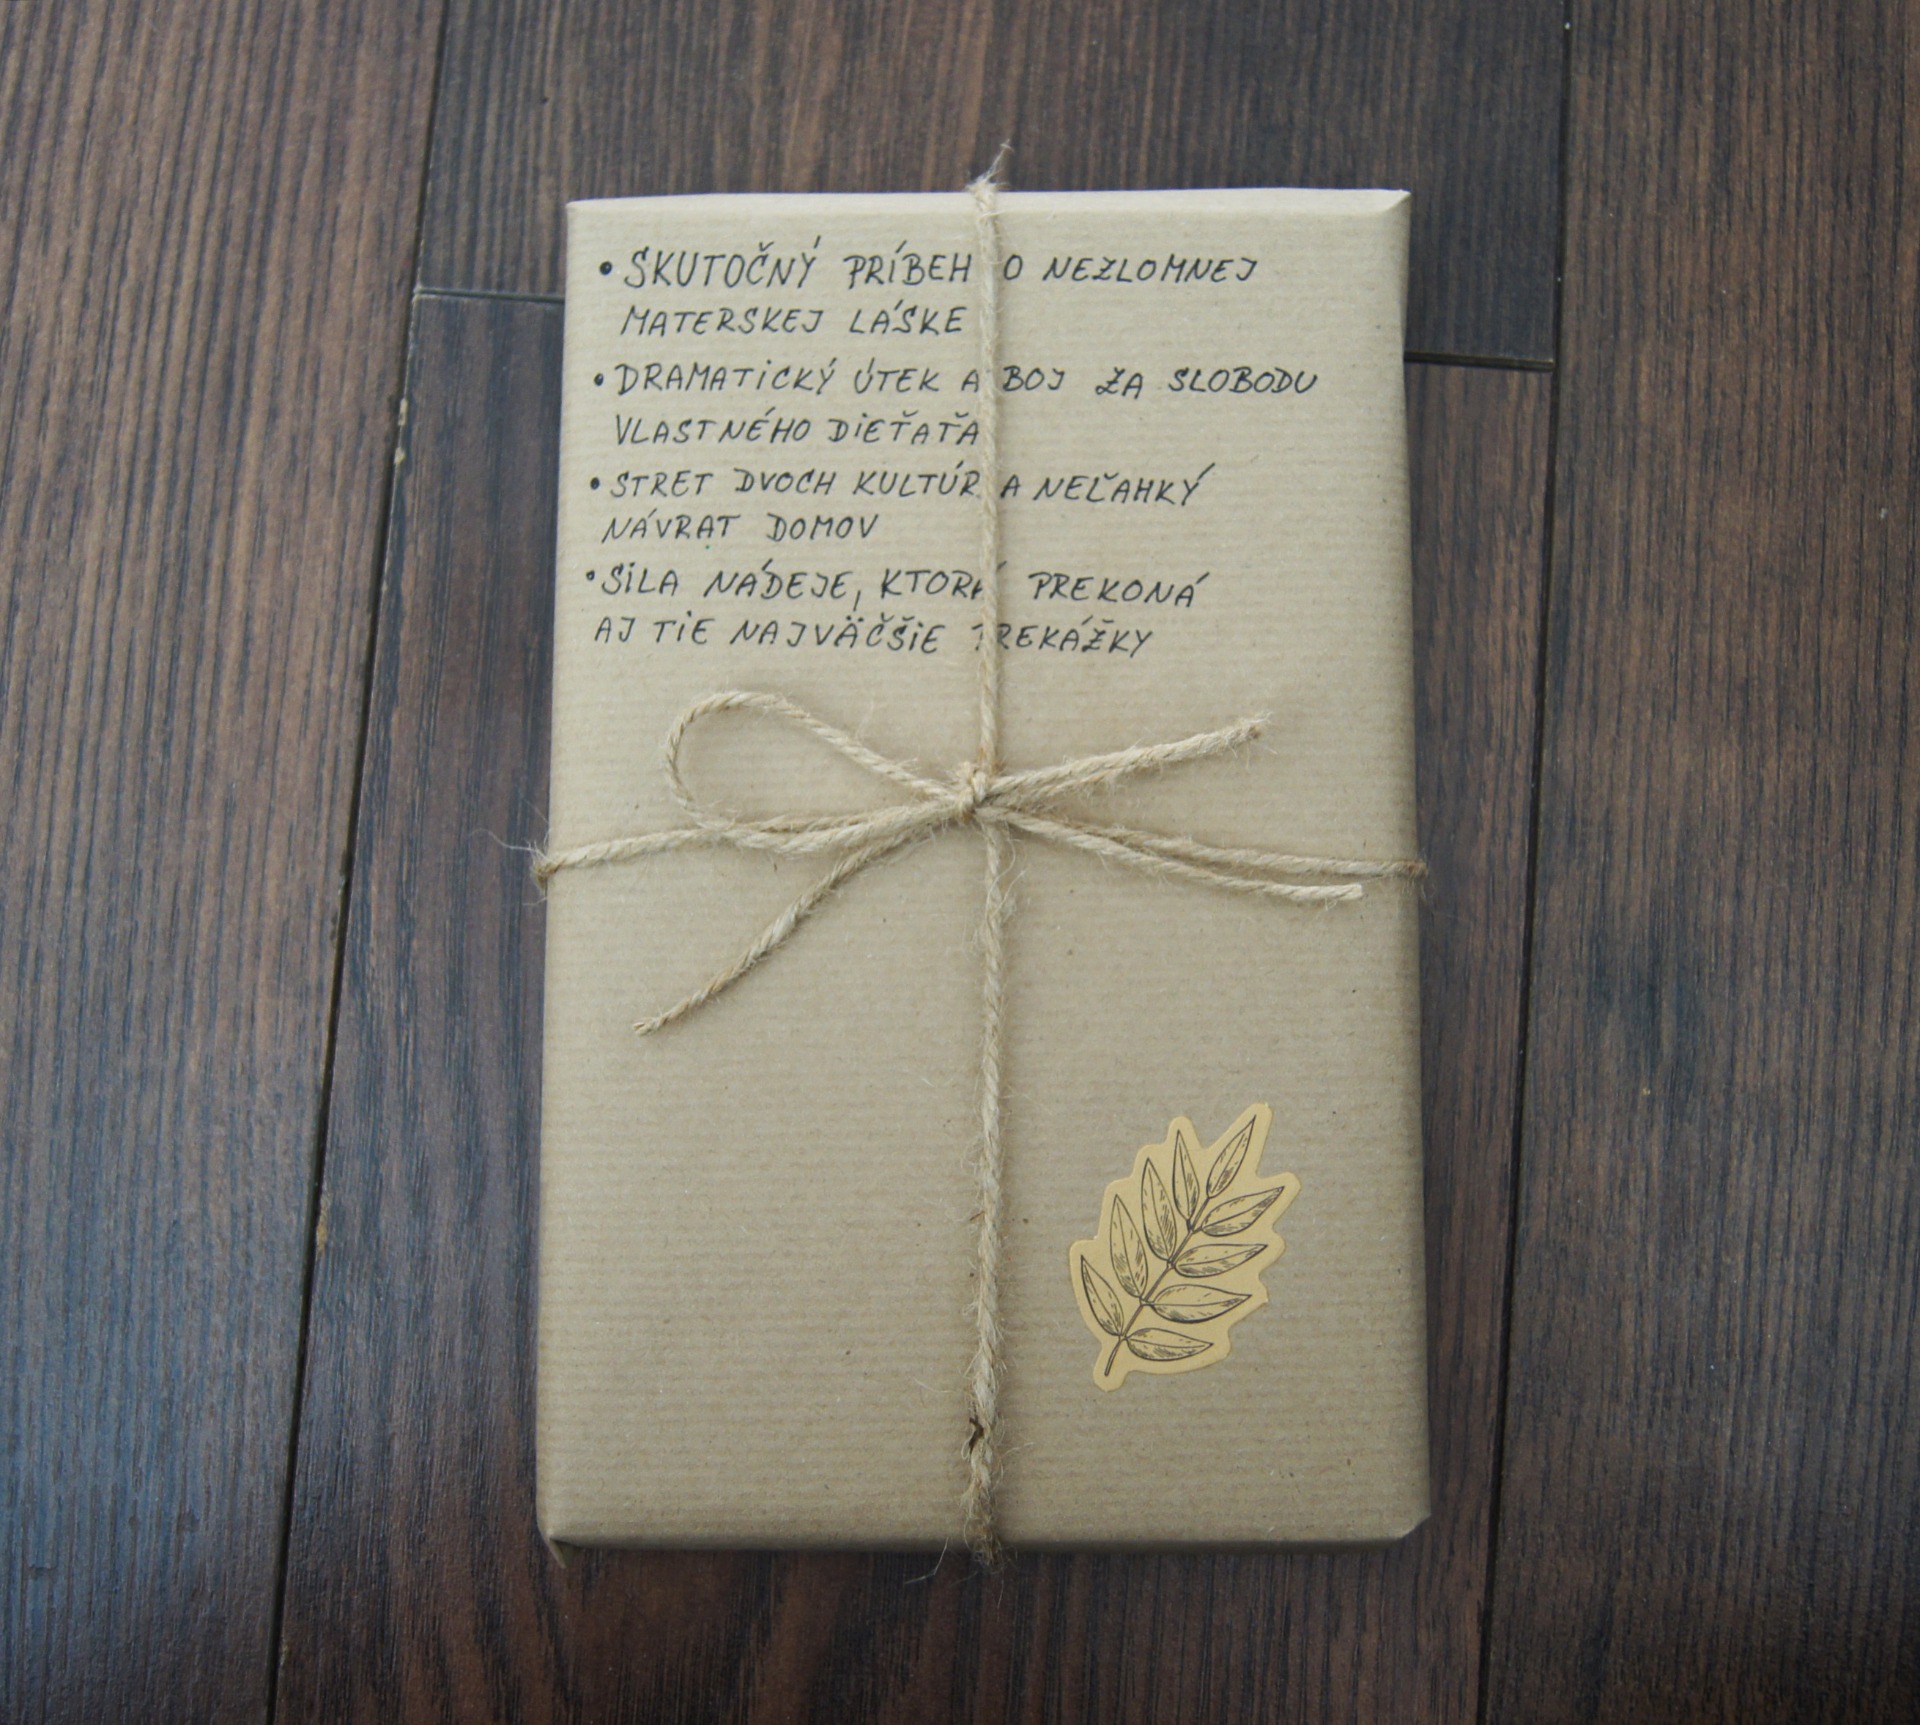 • SKUTOČNÝ PRÍBEH O NEZLOMNEJ
MATERSKEJ LÁSKE
• DRAMATICKÝ ÚTEK A BOJ ZA SLOBODU
VLASTNÉHO DIEŤAŤA
• STRET DVOCH KULTÚR A NEĽAHKÝ
NÁVRAT DOMOV
• SILA NÁDEJE, KTORÁ PREKONÁ
AJ TIE NAJVÄČŠIE PREKÁŽKY